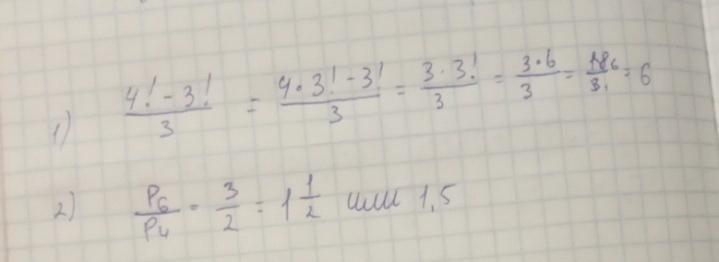 1) (4! - 3!)/3 = (4·3! - 3!)/3 = (3·3!)/3 = (3·6)/3 = 18/3 = 6
2) P6/P4 = 3/2 = 1 1/2 или 1,5